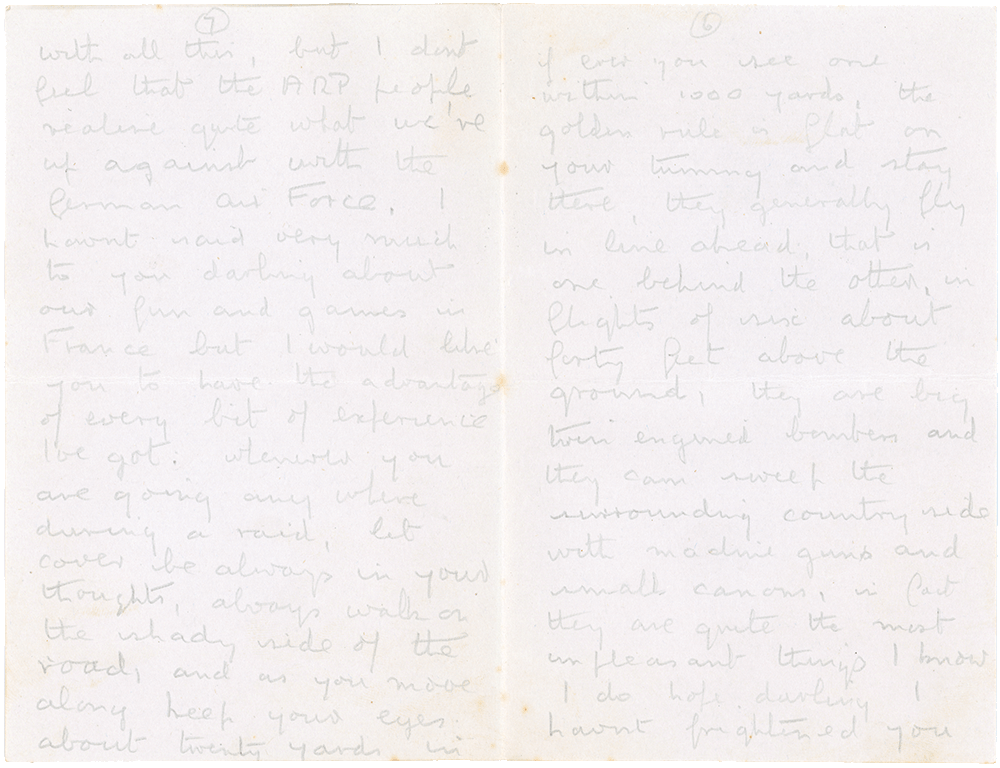 7
with all this, but I dont
feel that the ARP people
realise quite what we've
up against with the
German Air Force. I
havnt said very much
to you darling about
our fun and games in
France but I would like
you to have the advantage
of every bit of experience
I've got. whenever you
are going any where
during a raid, let
cover be always in your
thoughts, always walk on
the shady side of the
road, and as you move
along keep your eyes
about twenty yards in
6
if ever you see one
within 1000 yards, the
golden rule is flat on
your tummy and stay
there, they generally fly
in line ahead, that is
one behind the other, in
flights of six about
forty feet above the
ground, they are big
twin engined bombers and
they can sweep the
surrounding country side
with machine guns and
small canons, in fact
they are quite the most
unpleasant things I know
I do hope darling I
havnt frightened you